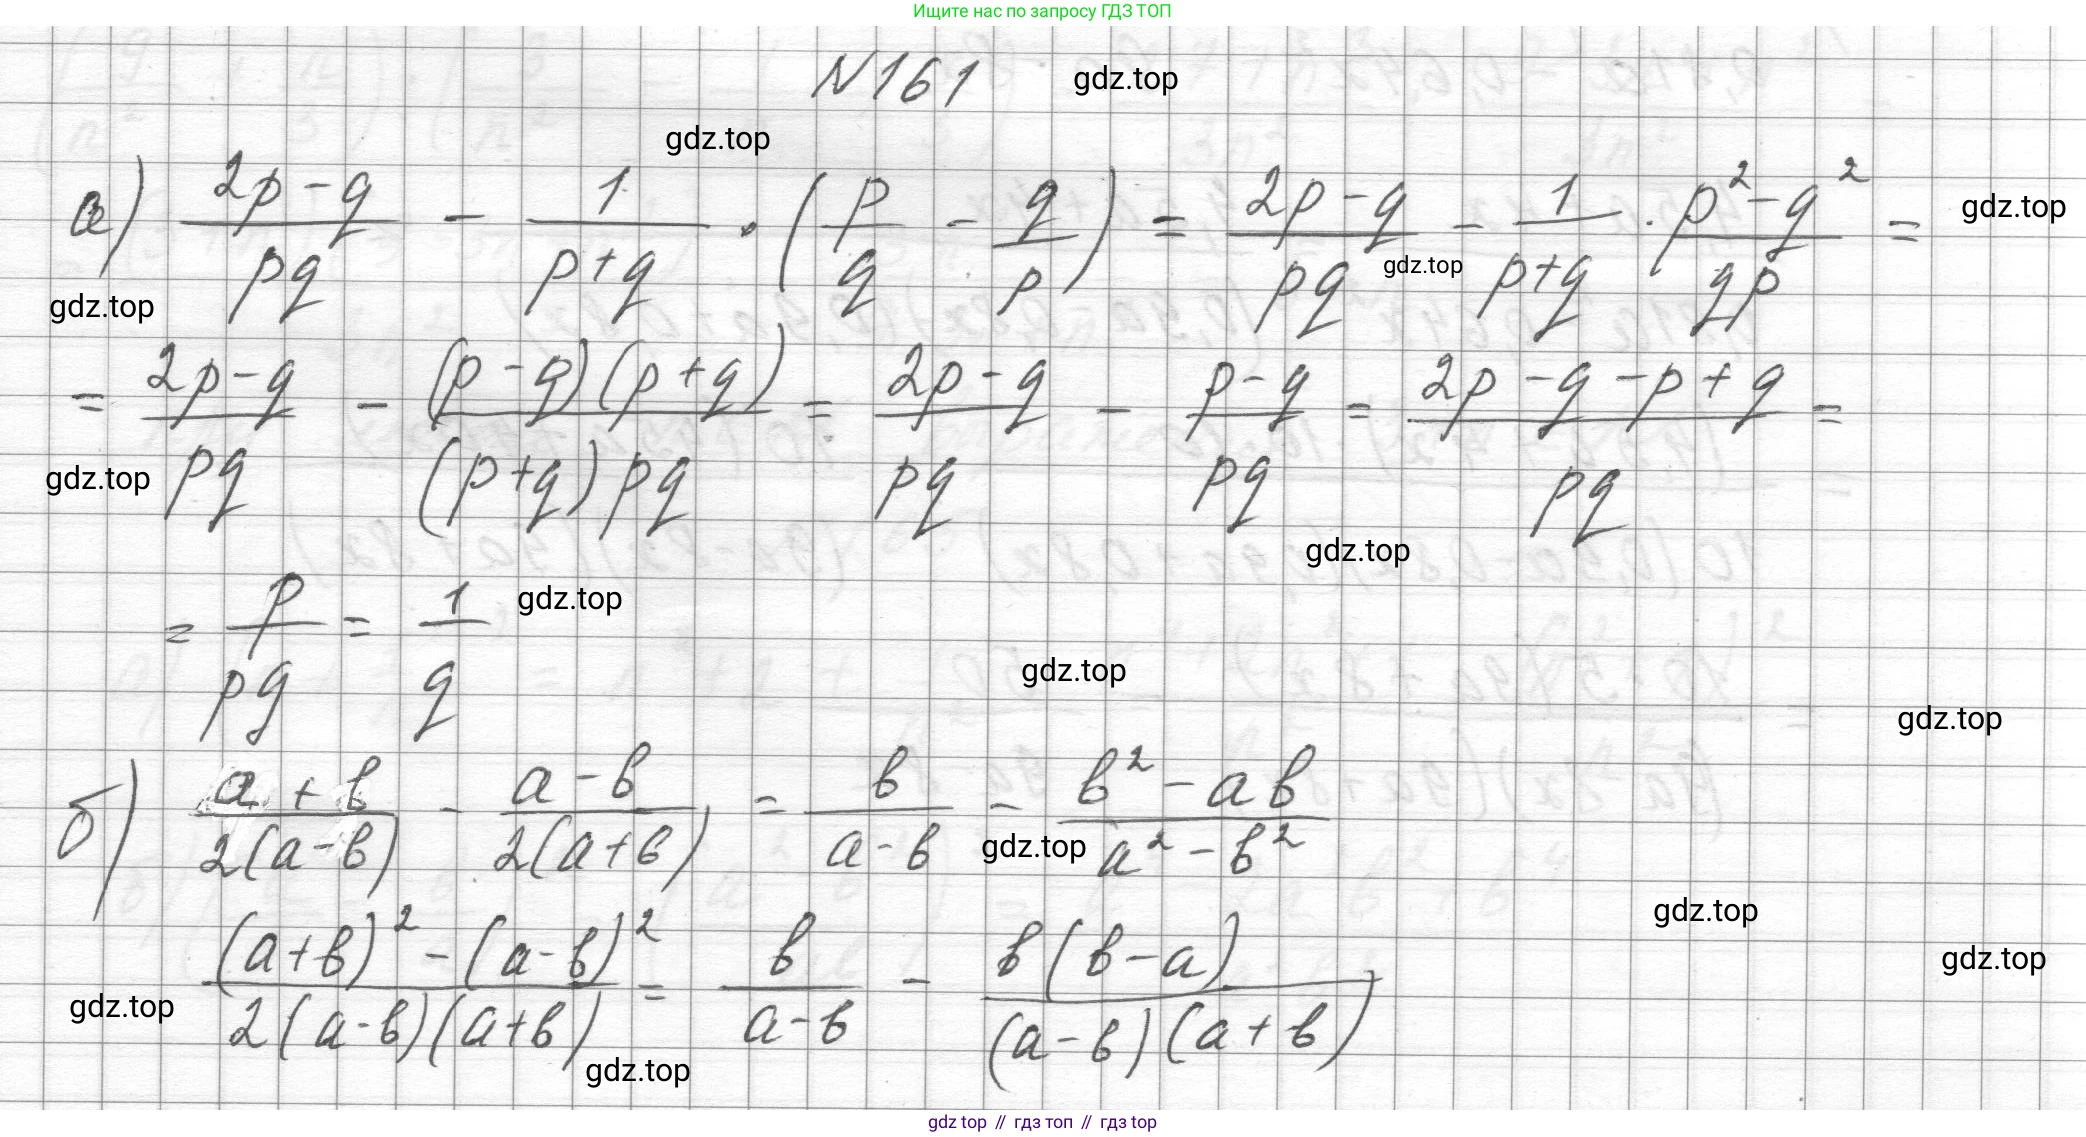 Ищите нас по запросу ГДЗ ТОП
N161 gdz.top
gdz.top
а) (2p-q)/(pq) - 1/(p+q) · (p/q - q/p) = (2p-q)/(pq) - 1/(p+q) · (p²-q²)/(qp) = gdz.top
gdz.top
gdz.top
= (2p-q)/(pq) - ((p-q)(p+q))/((p+q)pq) = (2p-q)/(pq) - (p-q)/(pq) = (2p-q-p+q)/(pq) =
gdz.top
gdz.top
= p/(pq) = 1/q gdz.top
gdz.top
gdz.top
б) (а+в)/(2(а-в)) - (а-в)/(2(а+в)) = в/(а-в) - (в²-ав)/(а²-в²)
gdz.top
gdz.top
((а+в)²-(а-в)²)/(2(а-в)(а+в)) = в/(а-в) - (в(в-а))/((а-в)(а+в))
gdz.top
gdz.top
gdz.top
gdz top // гдз топ // gdz top